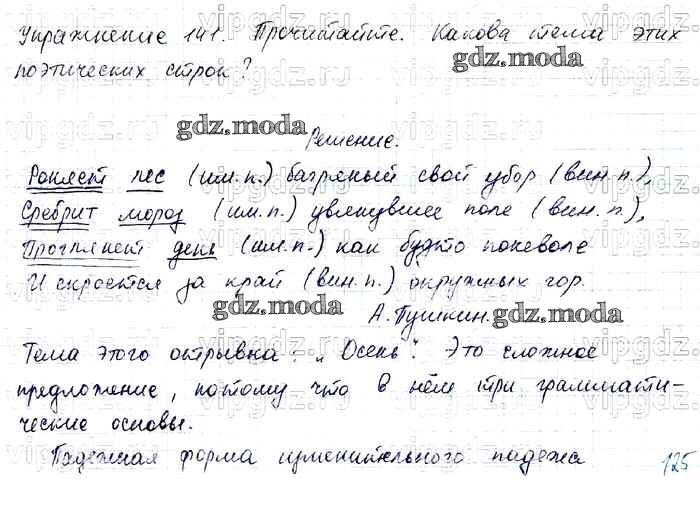 Упражнение 141. Прочитайте. Какова тема этих
gdz.moda
поэтических строк?
gdz.moda
Решение.
Роняет лес (им.п.) багряный свой убор (вин.п.),
Сребрит мороз (им.п.) увянувшее поле (вин.п.),
Проглянет день (им.п.) как будто поневоле
И скроется за край (вин.п.) окружных гор.
gdz.moda
А.Пушкин.
gdz.moda
Тема этого отрывка: "Осень". Это сложное
предложение, потому что в нём три граммати-
ческие основы.
Падежная форма именительного падежа
125